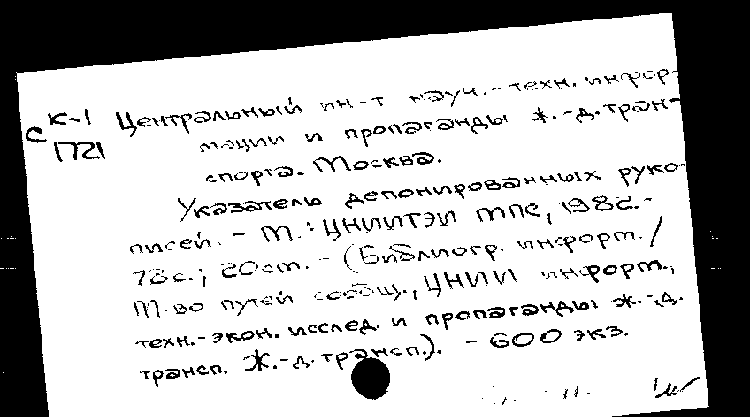 К-1 Центральный ин-т науч.-техн. инфор-
С 1721 мации и пропаганды ж.-д. тран-
спорта. Москва.
Указатель депонированных руко-
писей. - М.: ЦНИИТЭИ МПС, 1982.-
78с.; 20см. - (Библиогр. информ. /
М-во путей сообщ., ЦНИИ информ.,
техн.-экон. исслед. и пропаганды ж.-д.
трансп. Ж.-д. трансп.). - 600 экз.